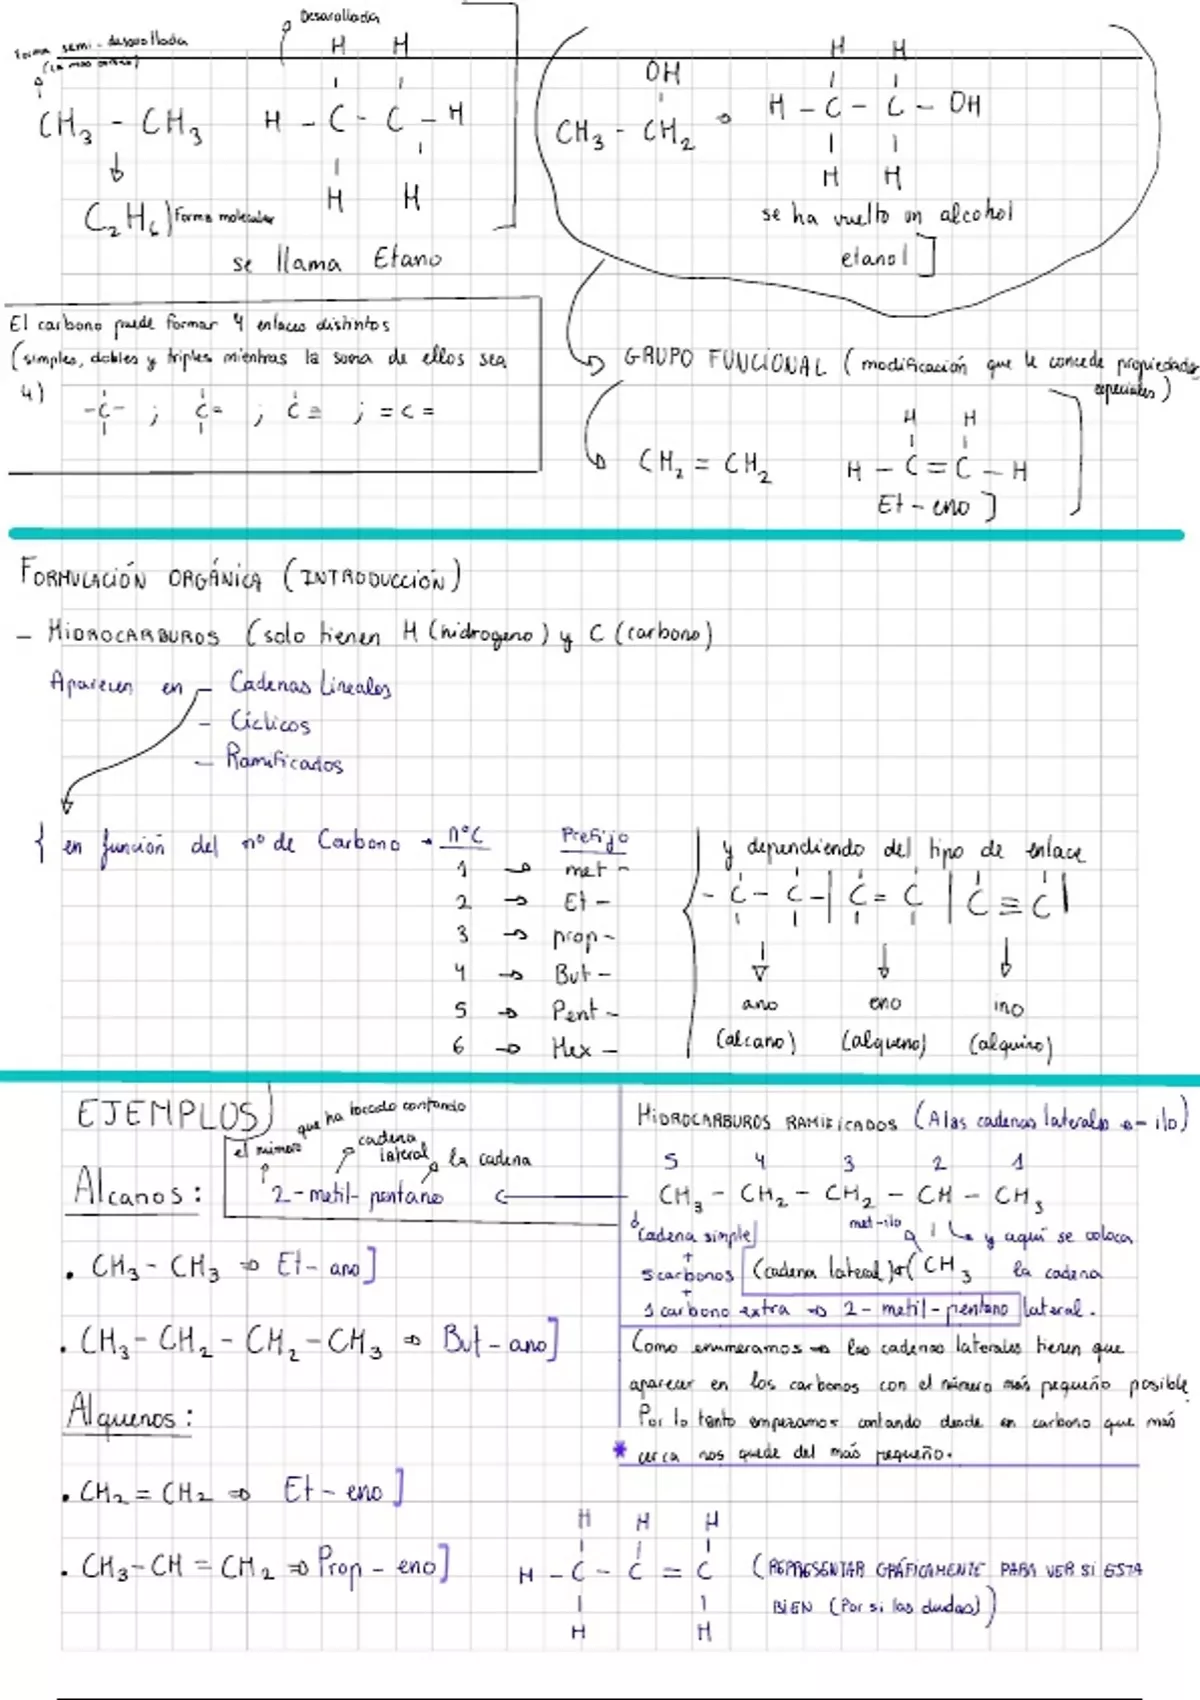 Forma semi-desarrollada
Desarollada
H H
CH₃ - CH₃
H - C - C - H
H H
C₂H₆) Forma molecular
se llama Etano
OH
CH₃ - CH₂ o
H H
H - C - C - OH
H H
se ha vuelto un alcohol
etanol]
El carbono puede formar 4 enlaces distintos
(simples, dobles y triples mientras la soma de ellos sea
4)
-C- ; C= ; C≡ ; =C=
GRUPO FUNCIONAL (modificación que le concede propiedades
especiales)
CH₂ = CH₂
H H
H - C = C - H
Et - eno]
FORMULACIÓN ORGÁNICA (INTRODUCCIÓN)
- HIDROCARBUROS (solo tienen H (hidrogeno) y C (carbono)
Aparecen en - Cadenas Lineales
- Cíclicos
- Ramificados
{ en función del nº de Carbono → nºC Prefijo
1 → met -
2 → Et -
3 → prop -
4 → But -
5 → Pent -
6 → Hex -
y dependiendo del tipo de enlace
- C - C - | C = C | C ≡ C |
ano eno ino
(alcano) (alqueno) (alquino)
EJEMPLOS)
el número que ha tocado contando
cadena lateral
la cadena
Alcanos:
2-metil-pentano
• CH₃ - CH₃ ⇒ Et - ano]
• CH₃ - CH₂ - CH₂ - CH₃ ⇒ But - ano]
Alquenos:
• CH₂ = CH₂ ⇒ Et - eno]
• CH₃ - CH = CH₂ ⇒ Prop - eno]
HIDROCARBUROS RAMIFICADOS (A las cadenas laterales - ilo)
5 4 3 2 1
CH₃ - CH₂ - CH₂ - CH - CH₃
Cadena simple
met-ilo
y aquí se coloca
+
5 carbonos (cadena lateral) (CH₃ la cadena
+
1 carbono extra ⇒ 2-metil-pentano lateral.
Como enumeramos ⇒ las cadenas laterales tienen que
aparecer en los carbonos con el número más pequeño posible
Por lo tanto empezamos contando desde en carbono que más
* cerca nos quede del más pequeño.
H H H
H - C - C = C
H H
(REPRESENTAR GRÁFICAMENTE PARA VER SI ESTA
BIEN (Por si las dudas))